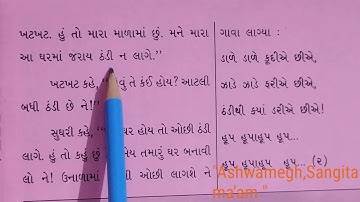 ખટખટ. હું તો મારા માળામાં છું. મને મારા
આ ઘરમાં જરાય ઠંડી ન લાગે.”
ખટખટ કહે, વું તે કંઈ હોય? આટલી
બધી ઠંડી છે ને!”
સુઘરી કહે, ઘર હોય તો ઓછી ઠંડી
લાગે. હું તો કહું છું મેય તમારું ઘર બનાવી
લો ને! ઉનાળામાં ી ઓછી લાગશે ને
ગાવા લાગ્યા :
ડાળે ડાળે કૂદીએ છીએ,
ઝાડે ઝાડે ફરીએ છીએ,
ઠંડીથી ક્યાં ડરીએ છીએ!
હૂપ હૂપાહૂપ હૂપ...
હૂપ હૂપાહૂપ હૂપ... (૨)
"Ashwamegh,Sangita
ma'am "